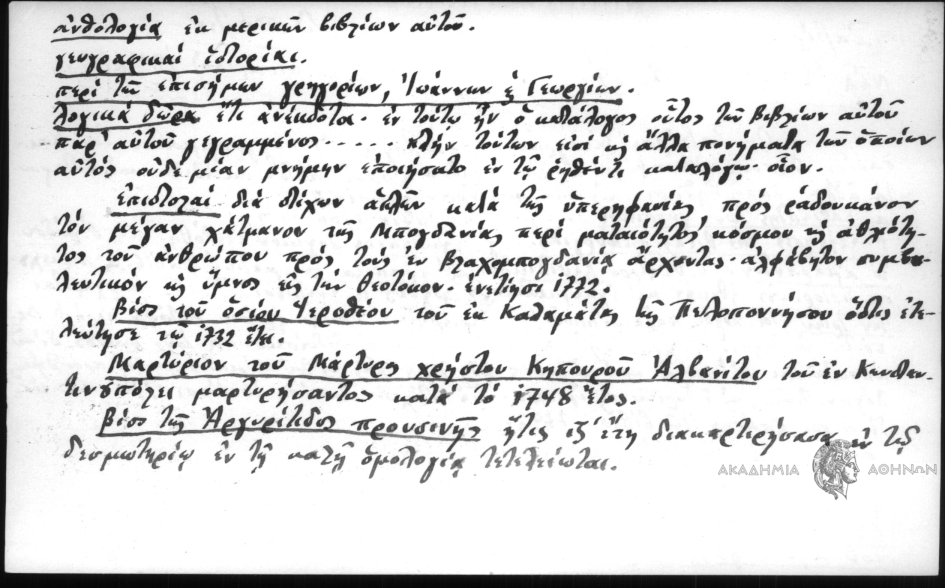 ἀνθολογία ἐκ μερικῶν βιβλίων αὐτοῦ.
γεωγραφικαί ἱστορίαι.
περί τῶν ἐπισήμων γρηγορίων, Ἰωάννων ϗ Γεωργίων.
Λογικά δῶρα ἔτι ἀνέκδοτα. ἐν τούτῳ ἦν ὁ κατάλογος οὗτος τῶν βιβλίων αὐτοῦ
παρ' αὐτοῦ γεγραμμένος ..... πλήν τούτων εἰσί ϗ ἄλλα πονήματα τῶν ὁποίων
αὐτός οὐδεμίαν μνήμην ἐποιήσατο ἐν τῷ ῥηθέντι καταλόγῳ. οἷον.
Ἐπιστολαί διά στίχων ἁπλῶν κατά τῆς ὑπερηφανίας πρός ῥαδουκάνον
τόν μέγαν χάτμανον τῆς Μπογδανίας περί ματαιότητος κόσμου ϗ ἀθλιότη-
τος τοῦ ἀνθρώπου πρός τούς ἐν βλαχομπογδανίᾳ ἄρχοντας. ἀλφάβητον συμβου-
λευτικόν ϗ ὕμνος εἰς τήν Θεοτόκον. ἐνετίησι 1772.
Βίος τοῦ ὁσίου Ἱεροθέου τοῦ ἐκ Καλαμάτας τῆς Πελοποννήσου ὅστις ἐτε-
λεύτησε τῷ 1732 ἔτει.
Μαρτύριον τοῦ Μάρτυρος χρήστου Κηπουροῦ Ἀλβανίτου τοῦ ἐν Κωνσταν-
τινουπόλει μαρτυρήσαντος κατά τό 1748 ἔτος.
Βίος τῆς Ἀργυρίτιδος προυσινῆς ἥτις ιζ' ἔτη διακαρτερήσασα ἐν τῷ
δεσμωτηρίῳ ἐν τῇ καλῇ ὁμολογίᾳ τετελείωται.
ΑΚΑΔΗΜΙΑ ΑΘΗΝΩΝ